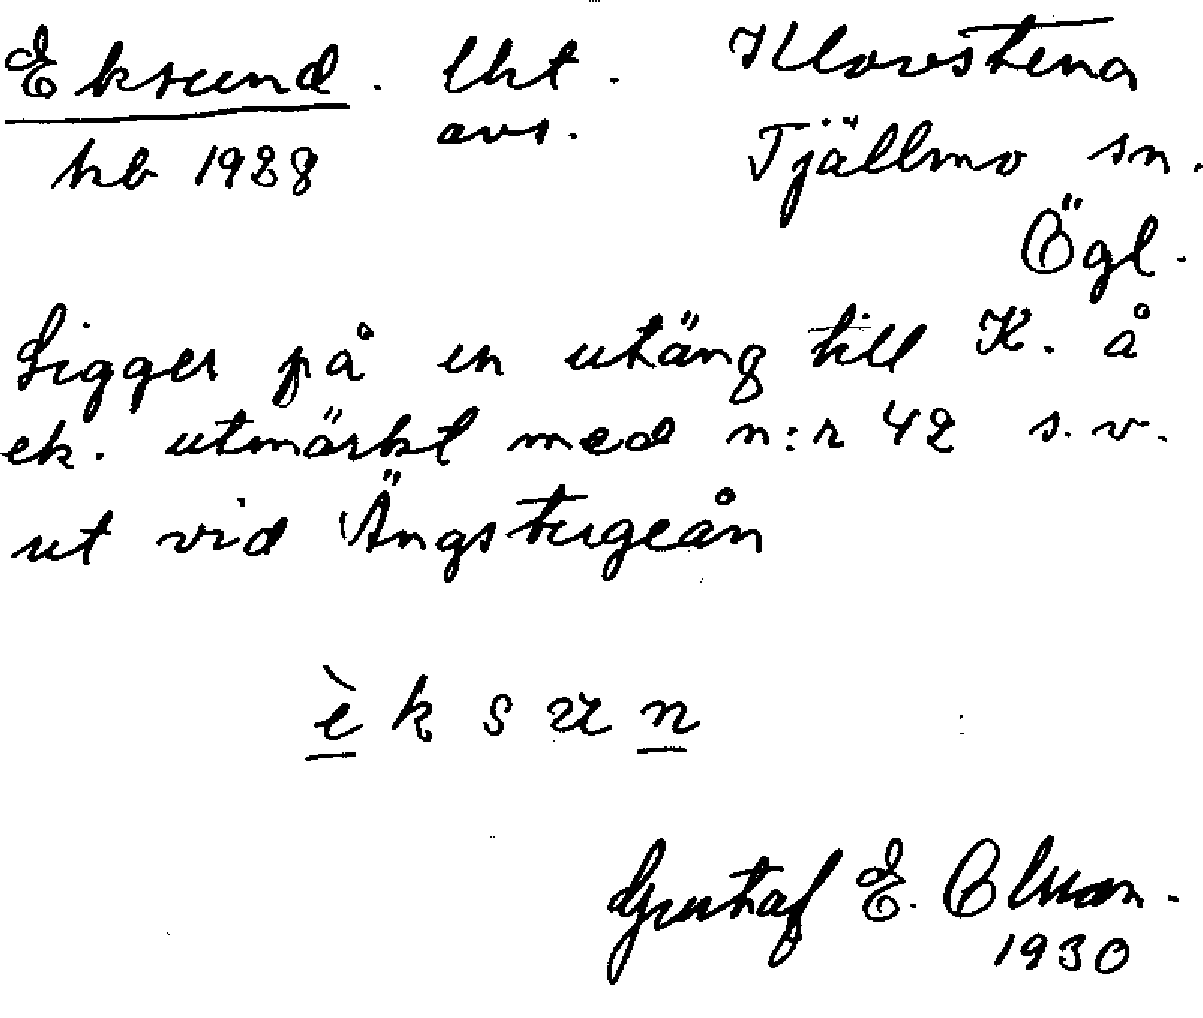 Eksund. lht. Klovstena
avs. Tjällmo sn.
hb 1928 Ögl.
Ligger på en utäng till K. å
ek. utmärkt med n:r 42 s.v.
ut vid Ängstugeån
è k s u n
Gustaf E. Olsson.
1930